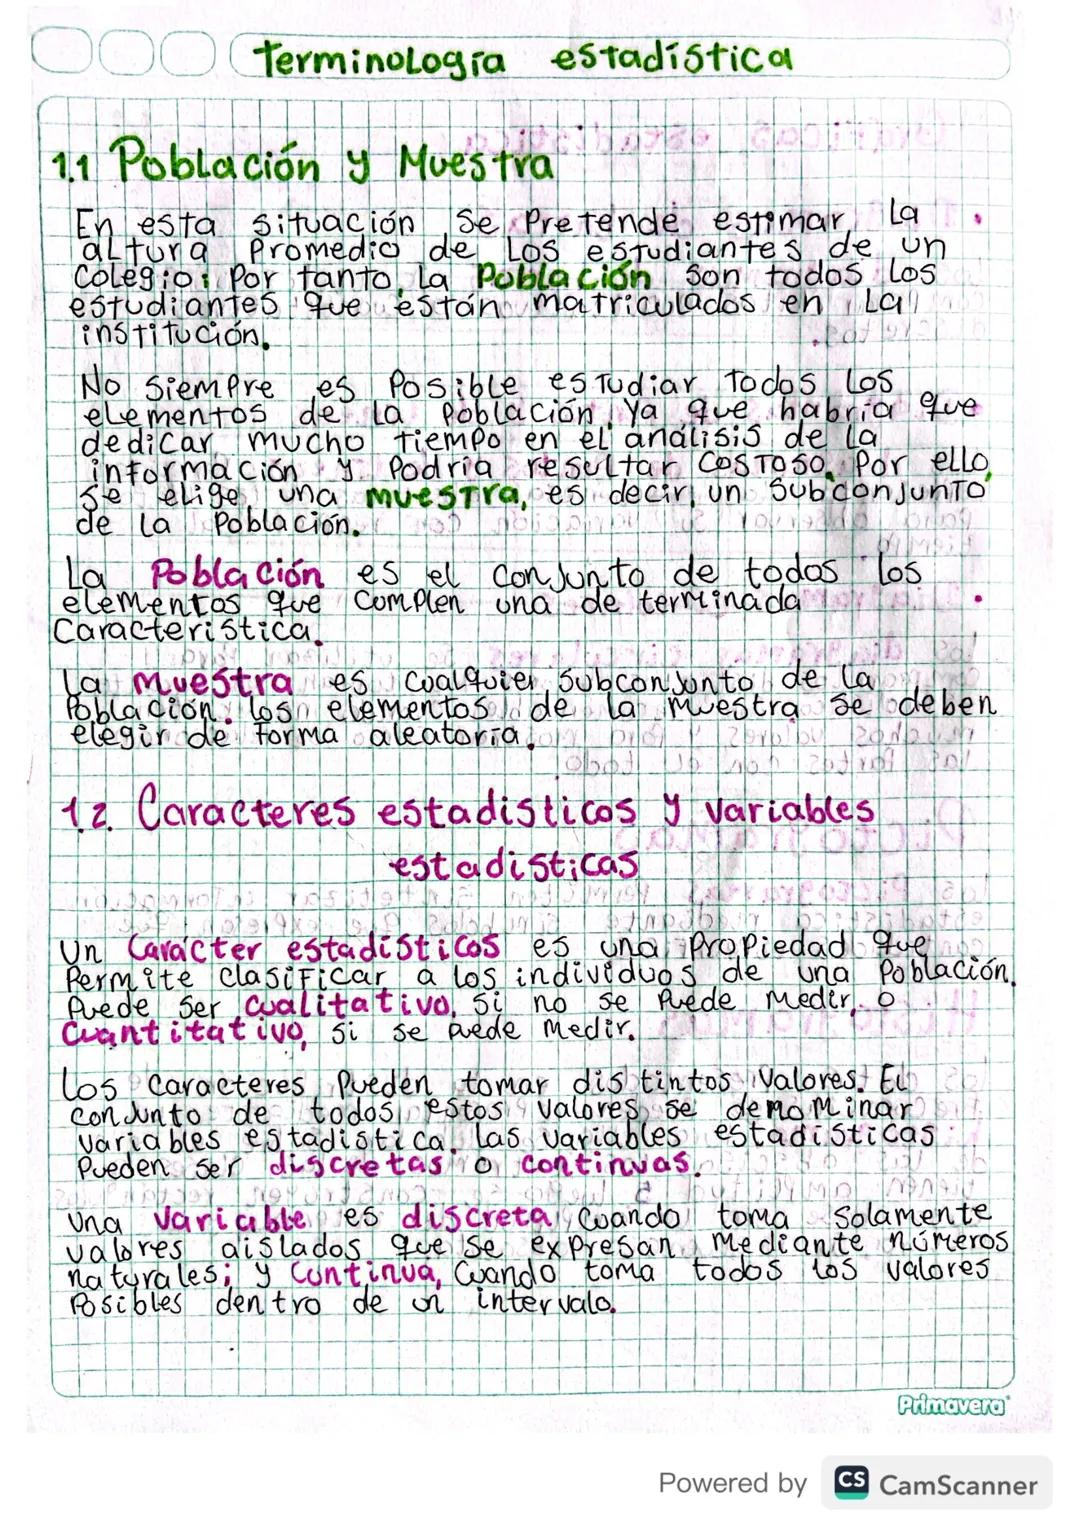 Terminología estadística
1.1 Población y Muestra
En esta situación se Pretende estimar la
altura Promedio de los estudiantes de un
colegio; Por tanto, la Población son todos los
estudiantes que están matriculados en la
institución.
No siempre es Posible estudiar todos los
elementos de la Población, ya que habría que
dedicar mucho tiempo en el análisis de la
información y Podría resultar costoso. Por ello,
se elige una muestra, es decir, un subconjunto
de la Población.
La Población es el conjunto de todos los
elementos que cumplen una determinada
Caracteristica.
La muestra es cualquier subconjunto de la
Población. los elementos de la muestra se deben
elegir de forma aleatoria.
1.2. Caracteres estadisticos y variables
estadisticas
Un Carácter estadísticos es una Propiedad que
Permite clasificar a los individuos de una Población.
Puede ser cualitativo, si no se Puede medir, o
Cuantitativo, si se puede medir.
Los caracteres Pueden tomar distintos Valores. El
conjunto de todos estos valores se denominar
variables estadística. las variables estadísticas
Pueden ser discretas o continuas.
Una variable es discreta cuando toma solamente
valores aislados que se expresan mediante números
naturales; y Continua, Cuando toma todos los valores
Posibles dentro de un intervalo.
Primavera
Powered by CS CamScanner